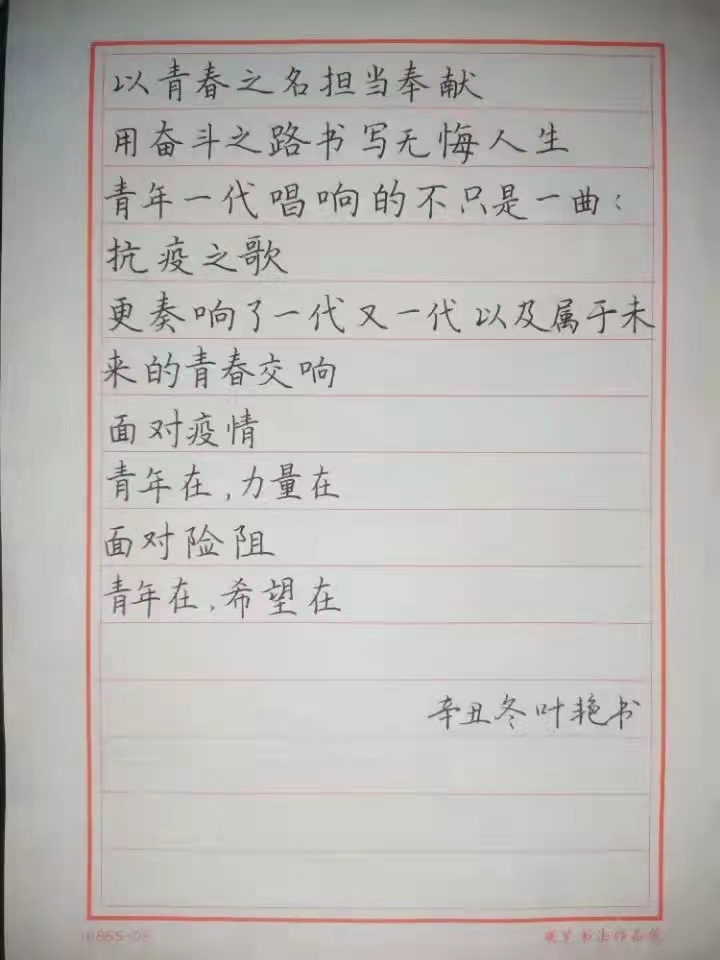 以青春之名担当奉献
用奋斗之路书写无悔人生
青年一代唱响的不只是一曲：
抗疫之歌
更奏响了一代又一代以及属于未
来的青春交响
面对疫情
青年在,力量在
面对险阻
青年在,希望在
辛丑冬叶艳书
硬笔书法作品纸